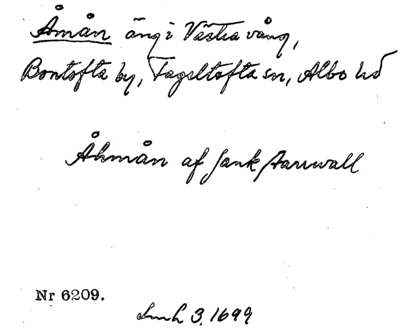 Åmån äng i Västra vång,
Bontofta by, Fågeltofta sn, Albo hd
Åhmån af sank
Nr 6209.
Lmh 3, 1699